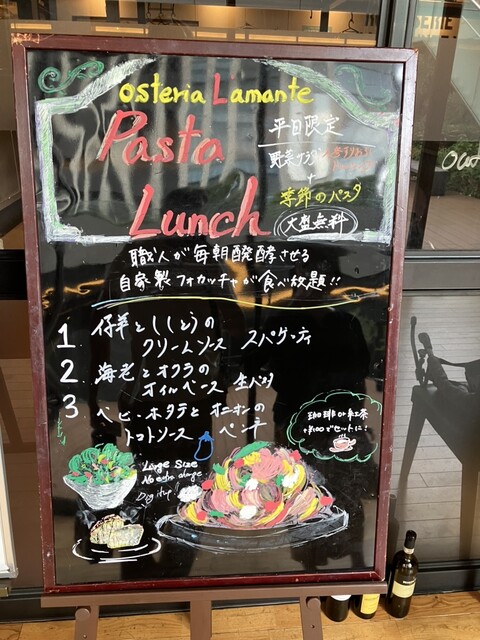 osteria L'amante
Pasta
Lunch
平日限定
野菜グラタン
+
季節のパスタ
大盛無料
職人が毎朝醗酵させる
自家製フォカッチャが食べ放題!!
1 仔羊とししとうの
クリームソース スパゲッティ
2 海老とオクラの
オイルベース 生パスタ
3 ベビーホタテとオニオンの
トマトソース ペンネ
珈琲 or 紅茶
+¥100でセットに!
Large Size
No extra charge
Dig it up!